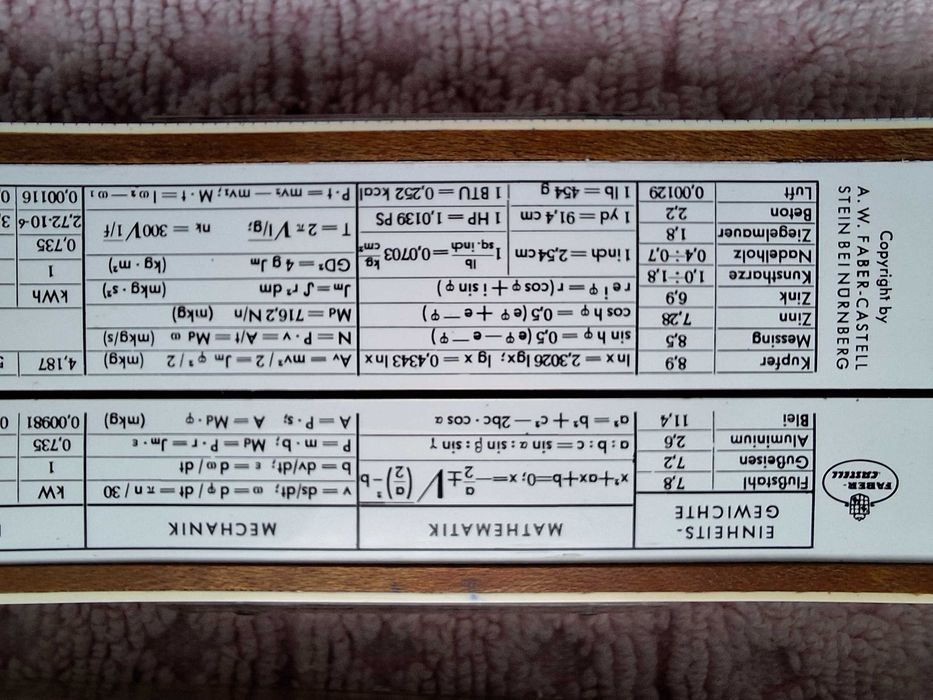 FABER-
CASTELL
Copyright by
A. W. FABER-CASTELL
STEIN BEI NÜRNBERG
EINHEITS-
GEWICHTE
Flußstahl 7,8
Gußeisen 7,2
Aluminium 2,6
Blei 11,4
Kupfer 8,9
Messing 8,5
Zinn 7,28
Zink 6,9
Kunstharze 1,0÷1,8
Nadelholz 0,4÷0,7
Ziegelmauer 1,8
Beton 2,2
Luft 0,00129
MATHEMATIK
x²+ax+b=0; x=−a/2±√(a/2)²−b
a : b : c = sin α : sin β : sin γ
a² = b² + c² − 2bc · cos α
ln x = 2,3026 lg x; lg x = 0,4343 ln x
sin h φ = 0,5 (e φ − e − φ)
cos h φ = 0,5 (e φ + e − φ)
r e i φ = r (cos φ + i sin φ)
1 inch = 2,54 cm 1 lb/sq. inch = 0,0703 kg/cm²
1 yd = 91,4 cm 1 HP = 1,0139 PS
1 lb = 454 g 1 BTU = 0,252 kcal
MECHANIK
v = ds/dt; ω = d φ / dt = π n / 30
b = dv/dt; ε = d ω / dt
P = m · b; Md = P · r = Jm · ε
A = P · s; A = Md · φ (mkg)
Av = mv² / 2 = Jm ω² / 2 (mkg)
N = P · v = A/t = Md ω (mkg/s)
Md = 716,2 N/n (mkg)
Jm = ∫ r² dm (mkg · s²)
GD² = 4 g Jm (kg · m²)
T = 2 π √l/g; nk = 300 √1/f
P · t = mv₂ − mv₁; M · t = I ω₂ − ω₁
kW
1
0,735
0,00981 0
4,187 5
kWh
1
0,735
2,72·10-6 3,
0,00116 0